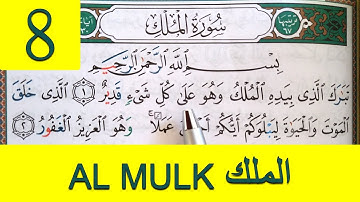 8
ترتيبها ٦٧
سُورَةُ المُلْكِ
بِسْمِ اللَّهِ الرَّحْمَٰنِ الرَّحِيمِ
تَبَٰرَكَ الَّذِى بِيَدِهِ الْمُلْكُ وَهُوَ عَلَىٰ كُلِّ شَىْءٍ قَدِيرٌ ١ الَّذِى خَلَقَ
الْمَوْتَ وَالْحَيَوٰةَ لِيَبْلُوَكُمْ أَيُّكُمْ عَمَلًا وَهُوَ الْعَزِيزُ الْغَفُورُ ٢
AL MULK الملك